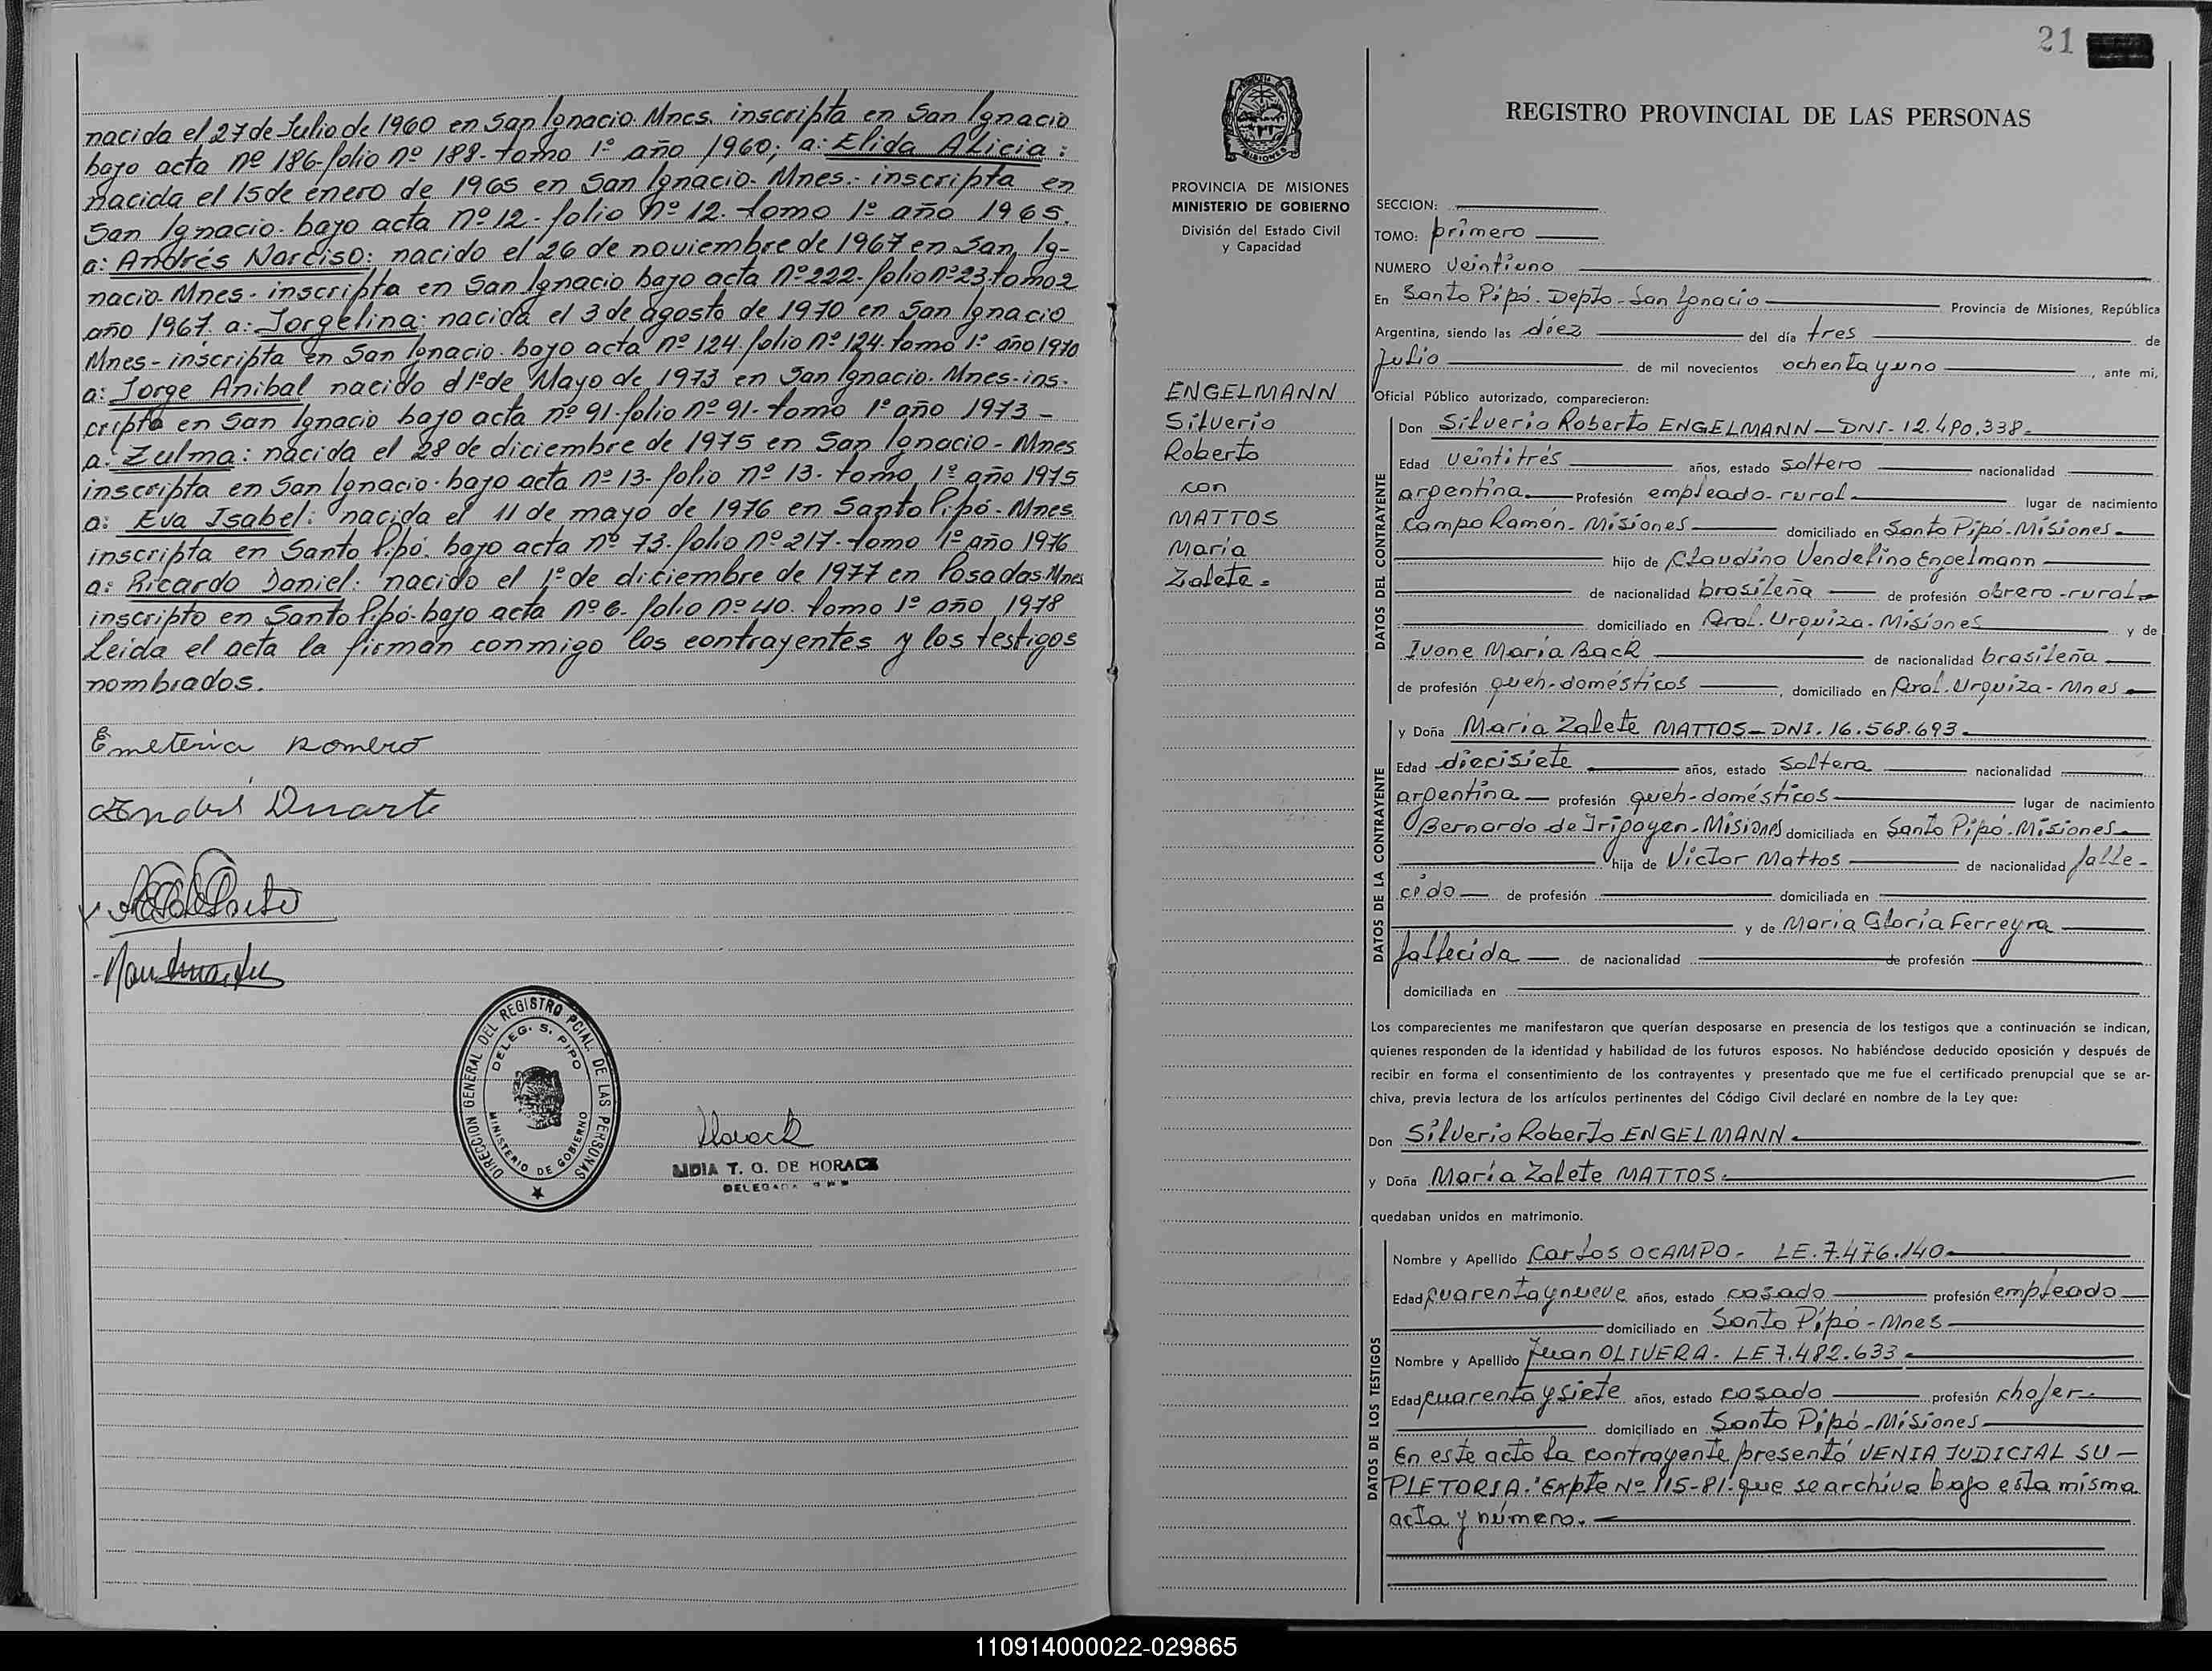 nacida el 27 de Julio de 1960 en San Ignacio Mnes. inscripta en San Ignacio
bajo acta nº 186-folio nº 188-tomo 1º año 1960; a: Elida Alicia:
nacida el 15 de enero de 1965 en San Ignacio-Mnes.- inscripta en
San Ignacio. bajo acta nº 12-folio nº 12. tomo 1º año 1965.
a: Andrés Narciso: nacido el 26 de noviembre de 1967 en San Ig-
nacio-Mnes-inscripta en San Ignacio bajo acta nº 222-folio nº 23 tomo 2
año 1967. a: Jorgelina: nacida el 3 de agosto de 1970 en San Ignacio
Mnes-inscripta en San Ignacio. bajo acta nº 124. folio nº 124. tomo 1º año 1970
a: Jorge Anibal nacido el 1º de Mayo de 1973 en San Ignacio. Mnes-ins-
cripto en San Ignacio bajo acta nº 91-folio nº 91-tomo 1º año 1973-
a: Zulma: nacida el 28 de diciembre de 1975 en San Ignacio-Mnes
inscripta en San Ignacio. bajo acta nº 13-folio nº 13-tomo 1º año 1975
a: Eva Isabel: nacida el 11 de mayo de 1976 en Santo Pipó-Mnes
inscripta en Santo Pipó. bajo acta nº 73-folio nº 217-tomo 1º año 1976
a: Ricardo Daniel: nacido el 1º de diciembre de 1977 en Posadas Mnes
inscripto en Santo Pipó-bajo acta nº 6-folio nº 40. tomo 1º año 1978
Leida el acta la firman conmigo los contrayentes y los testigos
nombrados.
Emeteria Romero
Duarte
DIRECCION GENERAL DEL REGISTRO PCIAL. DE LAS PERSONAS
DELEG. S. PIPO
MINISTERIO DE GOBIERNO
Horack
LIDIA T. G. DE HORACK
DELEGADA
21
PROVINCIA DE MISIONES
MINISTERIO DE GOBIERNO
División del Estado Civil
y Capacidad
ENGELMANN
Silverio
Roberto
con
MATTOS
María
Zalete=
REGISTRO PROVINCIAL DE LAS PERSONAS
SECCION:
TOMO: primero
NUMERO veintiuno
En Santo Pipó. Depto-San Ignacio Provincia de Misiones, República
Argentina, siendo las diez del día tres de
julio de mil novecientos ochenta y uno, ante mi,
Oficial Público autorizado, comparecieron:
DATOS DEL CONTRAYENTE
Don Silverio Roberto ENGELMANN-DNI-12.490.338-
Edad veintitrés años, estado soltero nacionalidad
argentina Profesión empleado-rural lugar de nacimiento
Campo Ramón-Misiones domiciliado en Santo Pipó-Misiones
hijo de Claudino Vendelino Engelmann
de nacionalidad brasileña de profesión obrero-rural
domiciliado en Gral. Urquiza-Misiones y de
Ivone María Back de nacionalidad brasileña
de profesión queh-domésticos, domiciliado en Gral. Urquiza-Mnes
DATOS DE LA CONTRAYENTE
y Doña María Zalete MATTOS-DNI. 16.568.693
Edad diecisiete años, estado soltera nacionalidad
argentina profesión queh-domésticos lugar de nacimiento
Bernardo de Irigoyen-Misiones domiciliada en Santo Pipó-Misiones
hija de Victor Mattos de nacionalidad falle-
cido de profesión domiciliada en
y de María Gloria Ferreyra
fallecida de nacionalidad de profesión
domiciliada en
Los comparecientes me manifestaron que querían desposarse en presencia de los testigos que a continuación se indican,
quienes responden de la identidad y habilidad de los futuros esposos. No habiéndose deducido oposición y después de
recibir en forma el consentimiento de los contrayentes y presentado que me fue el certificado prenupcial que se ar-
chiva, previa lectura de los artículos pertinentes del Código Civil declaré en nombre de la Ley que:
Don Silverio Roberto ENGELMANN
y Doña María Zalete MATTOS
quedaban unidos en matrimonio.
DATOS DE LOS TESTIGOS
Nombre y Apellido Carlos OCAMPO- LE. 7.476.140
Edad cuarenta y nueve años, estado casado profesión empleado
domiciliado en Santo Pipó-Mnes
Nombre y Apellido Juan OLIVERA-LE 7.482.633
Edad cuarenta y siete años, estado casado profesión chofer
domiciliado en Santo Pipó-Misiones
En este acto la contrayente presentó VENIA JUDICIAL SU-
PLETORIA. "Expte Nº 115-81-que se archiva bajo esta misma
acta y número.
110914000022-029865